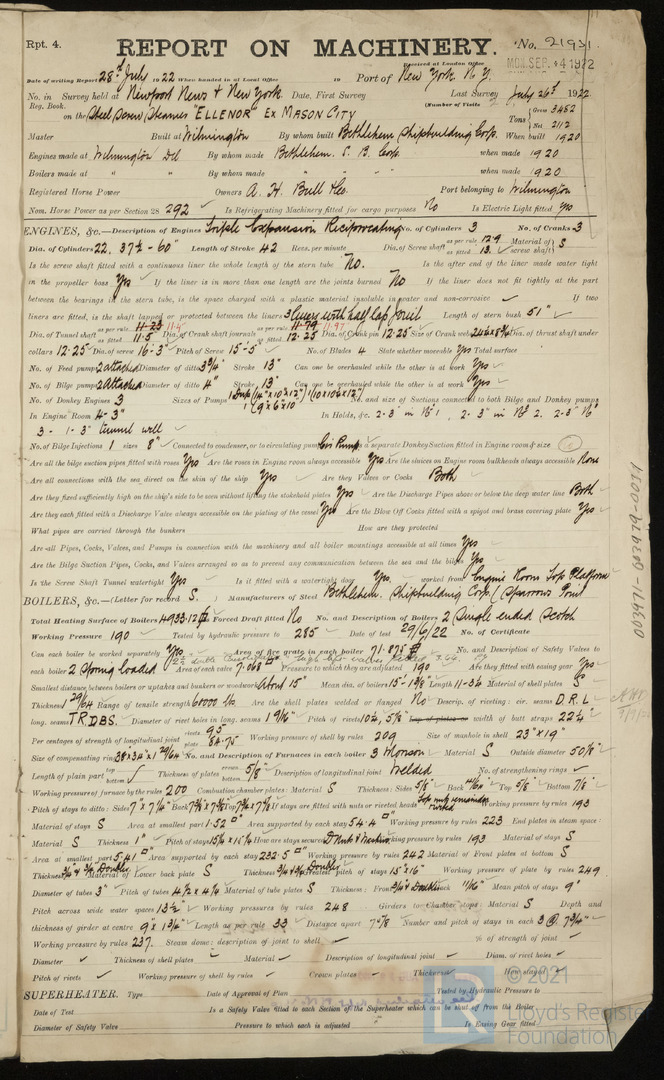 Rpt. 4.
REPORT ON MACHINERY.
No. 21931
Received at London Office
MON. SEP. -4 1922
Date of writing Report 28th July 1922 When handed in at Local Office 19 Port of New York N.Y.
No. in Reg. Book. Survey held at Newport News & New York Date, First Survey Last Survey July 26th 1922
(Number of Visits
on the Steel Screw Steamer "ELLENOR" Ex MASON CITY Tons Gross 3452 Net 2112
Master Built at Wilmington By whom built Bethlehem Shipbuilding Corp. When built 1920
Engines made at Wilmington Del By whom made Bethlehem. S. B. Corp. when made 1920
Boilers made at " " By whom made " when made 1920
Registered Horse Power Owners A. H. Bull Co. Port belonging to Wilmington
Nom. Horse Power as per Section 28 292 Is Refrigerating Machinery fitted for cargo purposes No Is Electric Light fitted Yes
ENGINES, &c.—Description of Engines Triple Expansion Reciprocating No. of Cylinders 3 No. of Cranks 3
Dia. of Cylinders 22. 37½ - 60" Length of Stroke 42 Revs. per minute Dia. of Screw shaft as per rule 12.9 as fitted 13. Material of screw shaft S
Is the screw shaft fitted with a continuous liner the whole length of the stern tube No. Is the after end of the liner made water tight
in the propeller boss Yes If the liner is in more than one length are the joints burned No If the liner does not fit tightly at the part
between the bearings in the stern tube, is the space charged with a plastic material insoluble in water and non-corrosive If two
liners are fitted, is the shaft lapped or protected between the liners Length of stern bush 51"
Dia. of Tunnel shaft as per rule 11.23 as fitted 11.5 Dia. of Crank shaft journals as per rule 11.79 11.97 as fitted 12.25 Dia. of Crank pin 12.25 Size of Crank webs Dia. of thrust shaft under
collars 12.25 Dia. of screw 16-3" Pitch of Screw 15-5" No. of Blades 4 State whether moveable Yes Total surface
No. of Feed pumps 2 attached Diameter of ditto 3¾" Stroke 13" Can one be overhauled while the other is at work Yes
No. of Bilge pumps 2 Attached Diameter of ditto 4" Stroke 13" Can one be overhauled while the other is at work Yes
No. of Donkey Engines 3 Sizes of Pumps No. and size of Suctions connected to both Bilge and Donkey pumps
In Engine Room 4-3" In Holds, &c. 2-3" in No 1, 2-3" in No 2, 2-3" No
3 - 1-3" tunnel well
No. of Bilge Injections 1 sizes 8" Connected to condenser, or to circulating pump Cir Pump Is a separate Donkey Suction fitted in Engine room & size
Are all the bilge suction pipes fitted with roses Yes Are the roses in Engine room always accessible Yes Are the sluices on Engine room bulkheads always accessible None
Are all connections with the sea direct on the skin of the ship Yes Are they Valves or Cocks Both
Are they fixed sufficiently high on the ship's side to be seen without lifting the stokehold plates Yes Are the Discharge Pipes above or below the deep water line Both
Are they each fitted with a Discharge Valve always accessible on the plating of the vessel Yes Are the Blow Off Cocks fitted with a spigot and brass covering plate Yes
What pipes are carried through the bunkers How are they protected
Are all Pipes, Cocks, Valves, and Pumps in connection with the machinery and all boiler mountings accessible at all times Yes
Are the Bilge Suction Pipes, Valves and Pipes arranged so as to prevent any communication between the sea and the bilges Yes
Is the Screw Shaft Tunnel watertight Yes Is it fitted with a watertight door Yes. worked from Engine Room Top Platform
BOILERS, &c.—(Letter for record S) Manufacturers of Steel Bethlehem. Shipbuilding Corp. (Sparrows Point
Total Heating Surface of Boilers 4933.12 Is Forced Draft fitted No No. and Description of Boilers 2 Single ended Scotch
Working Pressure 190 Tested by hydraulic pressure to 285 Date of test 29/6/22 No. of Certificate
Can each boiler be worked separately Yes Area of fire grate in each boiler 71.875 No. and Description of Safety Valves to
each boiler 2 Spring loaded Area of each valve 7.068 Pressure to which they are adjusted 190 Are they fitted with easing gear Yes
Smallest distance between boilers or uptakes and bunkers or woodwork About 15" Mean dia. of boilers 15-1⅜" Length 11-3½ Material of shell plates S
Thickness 1 29/64 Range of tensile strength 60000 lbs Are the shell plates welded or flanged No Descrip. of riveting: cir. seams D.R.L
long. seams T.R.D.B.S. Diameter of rivet holes in long. seams 1 9/16" Pitch of rivets 10¼, 5⅛" Lap of plates or width of butt straps 22¼"
Per centages of strength of longitudinal joint rivets 95 plate 84.75 Working pressure of shell by rules 209 Size of manhole in shell 23"x19"
Size of compensating ring No. and Description of Furnaces in each boiler 3 Morison Material S Outside diameter 50⅛"
Length of plain part top bottom Thickness of plates crown bottom 5/8" Description of longitudinal joint Welded No. of strengthening rings
Working pressure of furnace by the rules 200 Combustion chamber plates: Material S Thickness: Sides 5/8" Back 11/16" Top 5/8" Bottom 7/8"
Pitch of stays to ditto: Sides 7"x7⅞" Back Top If stays are fitted with nuts or riveted heads Working pressure by rules 193
Material of stays S Area at smallest part 1.52 Area supported by each stay 54.4 Working pressure by rules 223 End plates in steam space:
Material S Thickness 1" Pitch of stays How are stays secured Working pressure by rules 193 Material of stays S
Area at smallest part 5.41 Area supported by each stay 232.5 Working pressure by rules 242 Material of Front plates at bottom S
Thickness Material of Lower back plate S Thickness Greatest pitch of stays 15"x16" Working pressure of plate by rules 249
Diameter of tubes 3" Pitch of tubes 4½ x 4¼ Material of tube plates S Thickness: Front Back 11/16" Mean pitch of stays 9"
Pitch across wide water spaces 13½" Working pressures by rules 248 Girders to Chamber tops: Material S Depth and
thickness of girder at centre 9 x 1¾" Length as per rule 33 Distance apart 7⅞" Number and pitch of stays in each 3 @ 7¾"
Working pressure by rules 237. Steam dome: description of joint to shell % of strength of joint
Diameter Thickness of shell plates Material Description of longitudinal joint Diam. of rivet holes
Pitch of rivets Working pressure of shell by rules Crown plates Thickness How stayed
SUPERHEATER. Type Date of Approval of Plan Tested by Hydraulic Pressure to
Date of Test Is a Safety Valve fitted to each Section of the Superheater which can be shut off from the Boiler
Diameter of Safety Valve Pressure to which each is adjusted Is Easing Gear fitted
003471-003479-0031
© 2021
Lloyd's Register
Foundation